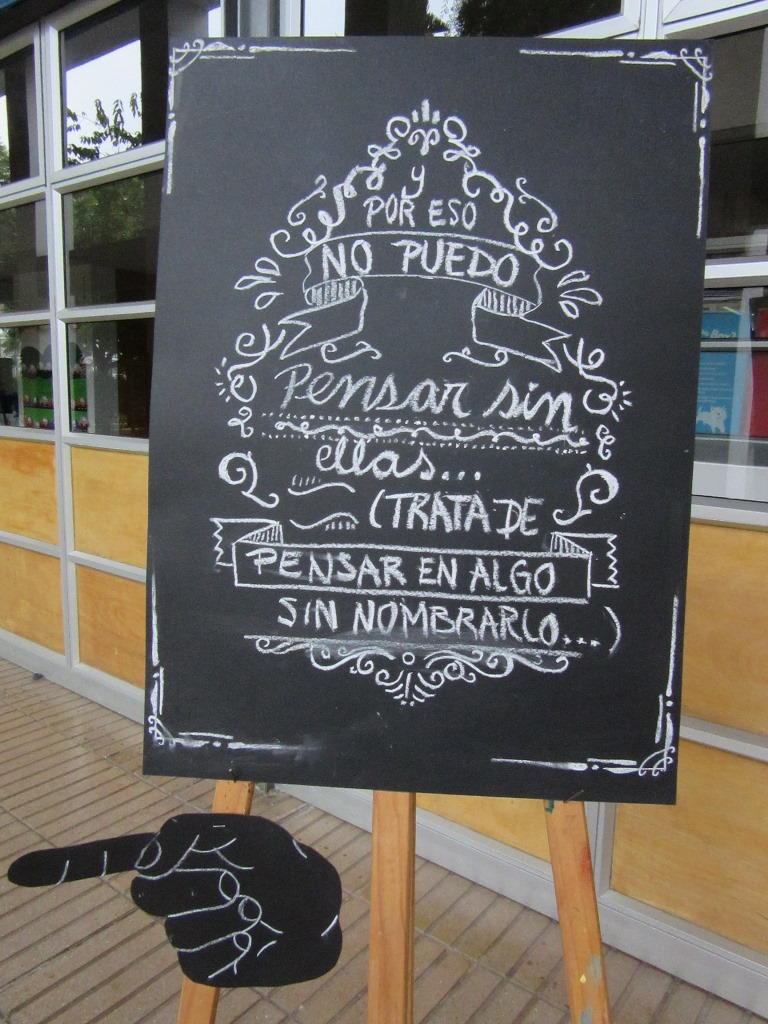 y
POR ESO
NO PUEDO
Pensar sin
ellas...
(TRATA DE
PENSAR EN ALGO
SIN NOMBRARLO...)